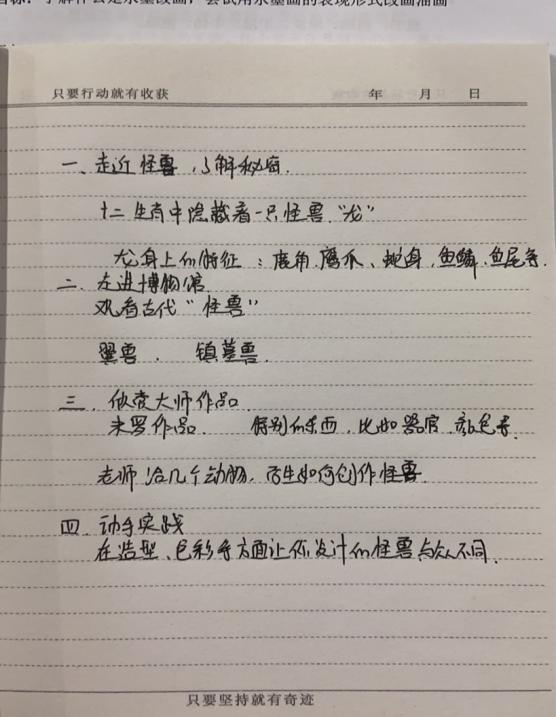 目标：了解什么是水墨改画，尝试用水墨画的表现形式改画油画
只要行动就有收获 年 月 日
一、走近怪兽，了解秘密.
十二生肖中隐藏着一只怪兽“龙”
龙身上的特征：鹿角、鹰爪、蛇身，鱼鳞、鱼尾等.
二、走进博物馆
观看古代“怪兽”
翼兽． 镇墓兽.
三．欣赏大师作品
米罗作品． 特别的东西，比如器官、颜色等.
老师给几个动物，百生如何创作怪兽.
四．动手实践
在造型、色彩等方面让你设计的怪兽与众不同.
只要坚持就有奇迹